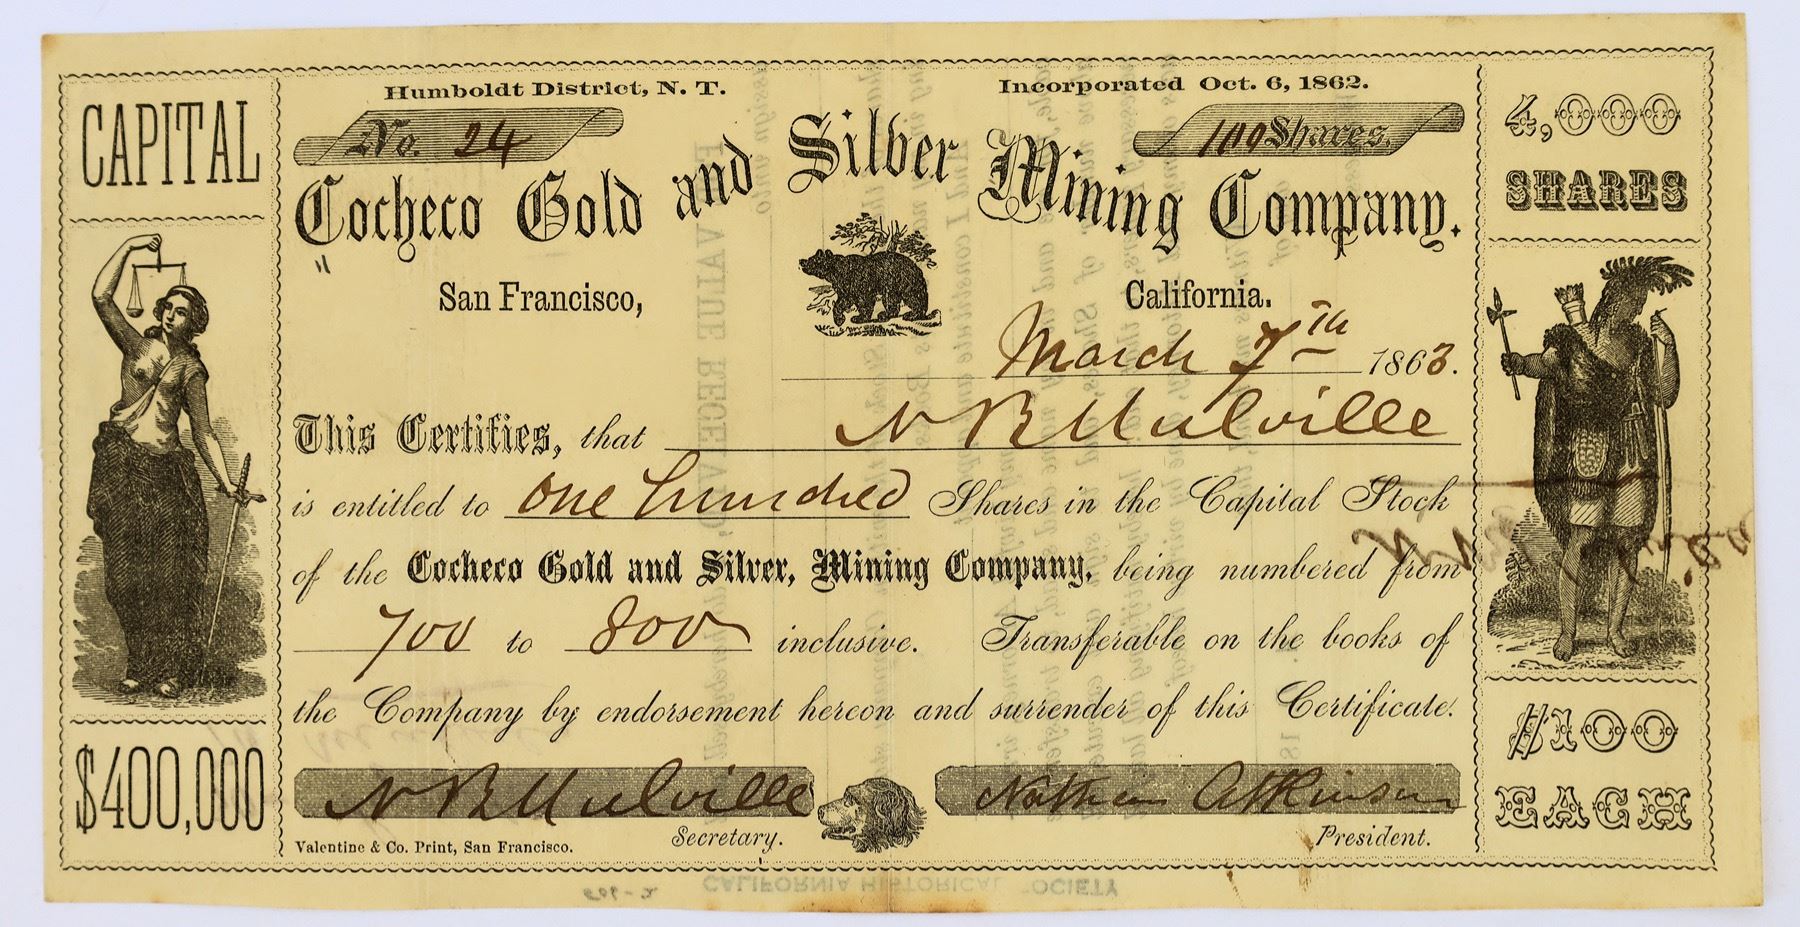 CAPITAL
$400,000
Humboldt District, N. T.
Incorporated Oct. 6, 1862.
No. 24
100 Shares.
Cocheco Gold and Silver Mining Company.
San Francisco,
California.
March 7th 1863.
This Certifies, that N B Mulville
is entitled to One hundred Shares in the Capital Stock
of the Cocheco Gold and Silver, Mining Company, being numbered from
700 to 800 inclusive. Transferable on the books of
the Company by endorsement hereon and surrender of this Certificate.
N B Mulville
Secretary.
Atkinson
President.
Valentine & Co. Print, San Francisco.
4,000
SHARES
$100
EACH
CALIFORNIA HISTORICAL